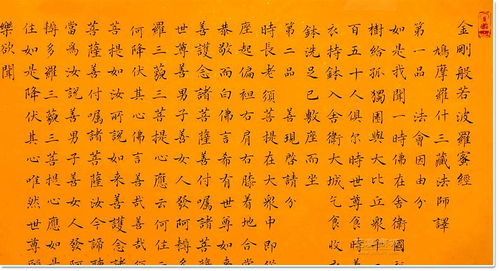 金剛般若波羅蜜經
鳩摩羅什三藏法師譯
第一品 法會因由分
如是我聞一時佛在舍衛國
樹給孤獨園與大比丘眾
百五十人俱尔時世尊食時
衣持鉢入舍衛大城乞食
鉢洗足已敷座而坐
第二品 善現啓請分
時長老須菩提在大眾中即從
座起偏袒右肩右膝着地合掌
恭敬而白佛言希有世尊
善護念諸菩薩善付囑諸菩
世尊善男子善女人發阿耨多
羅三藐三菩提心應云何住
何降伏其心佛言善哉善哉
菩提如汝所說如來善護念諸
菩薩善付囑諸菩薩汝今諦聽
當為汝說善男子善女人發阿
耨多羅三藐三菩提心應如是
住如是降伏其心唯然世尊
樂欲聞